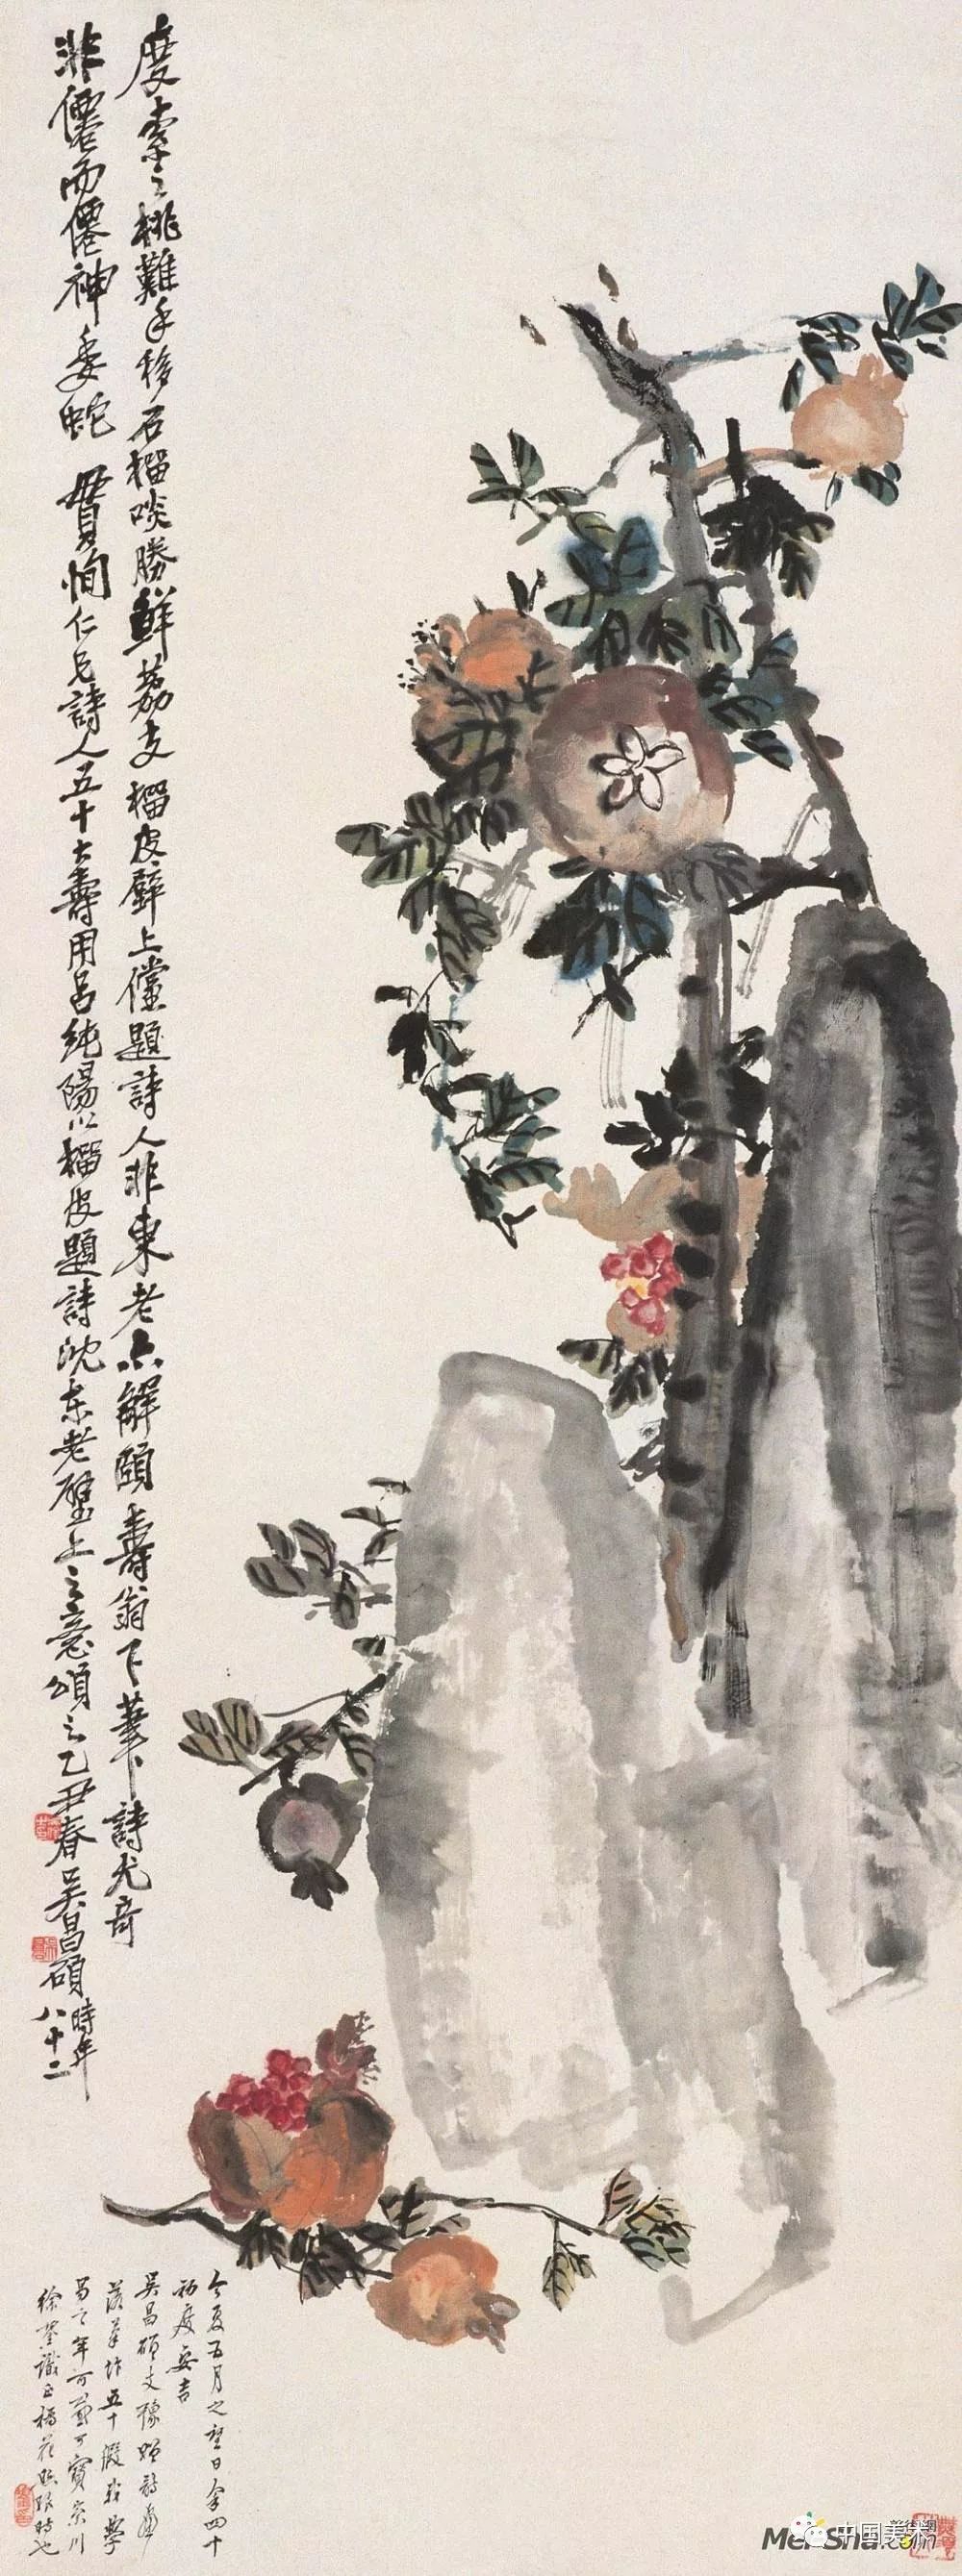 度索之桃難手移石榴啖勝鮮荔支榴皮壁上儻題詩人非東老亦解頤壽翁下筆詩尤奇
非僊而僊神委蛇 貫恂仁兄詩人五十大壽用呂純陽以榴皮題詩沈東老壁上之意頌之乙丑春吳昌碩時年八十二
今夏五月之望日余四十
初度安吉
吳昌碩丈豫贈詩畫
落筆作五十假我學
易之年可薟可寶崇川
徐鋆識正榴花照眼時也
Mei-Sha.com
中国美术